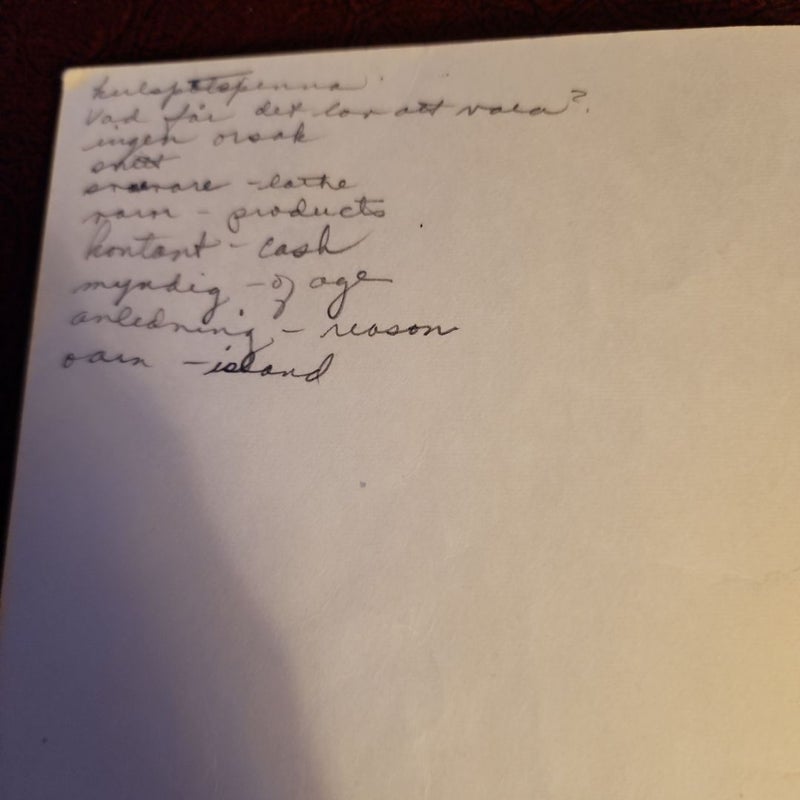 kulspetspenna
Vad får det lov att vara?
ingen orsak
svarvare - lathe
varn - products
kontant - cash
myndig - of age
anledning - reason
oarn - island